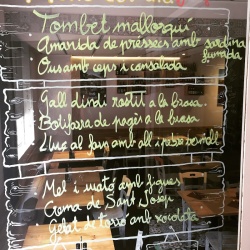 Tombet mallorquí
Amanida de pressecs amb sardina fumada
Ous amb ceps i cansalada
Gall dindi rostit a la brasa.
Botifarra de pagès a la brasa
Lluç al forn amb all i pebre vermell
Mel i mató amb figues
Crema de Sant Josep
Gelat de torró amb xocolata